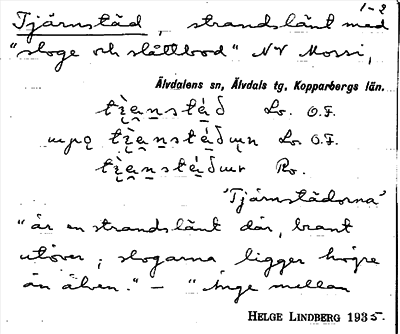 1-2
Tjärnstäd, strandslänt med
"sloge och slåttbod" NV Mossi,
Älvdalens sn, Älvdals tg, Kopparbergs län.
Lo. O.F.
Lo. O.F.
Ro.
'Tjärnstäderna'
"är en strandslänt där, brant
utöver; slogarna ligger högre
än älven." – "Änge mellan
HELGE LINDBERG 1935.